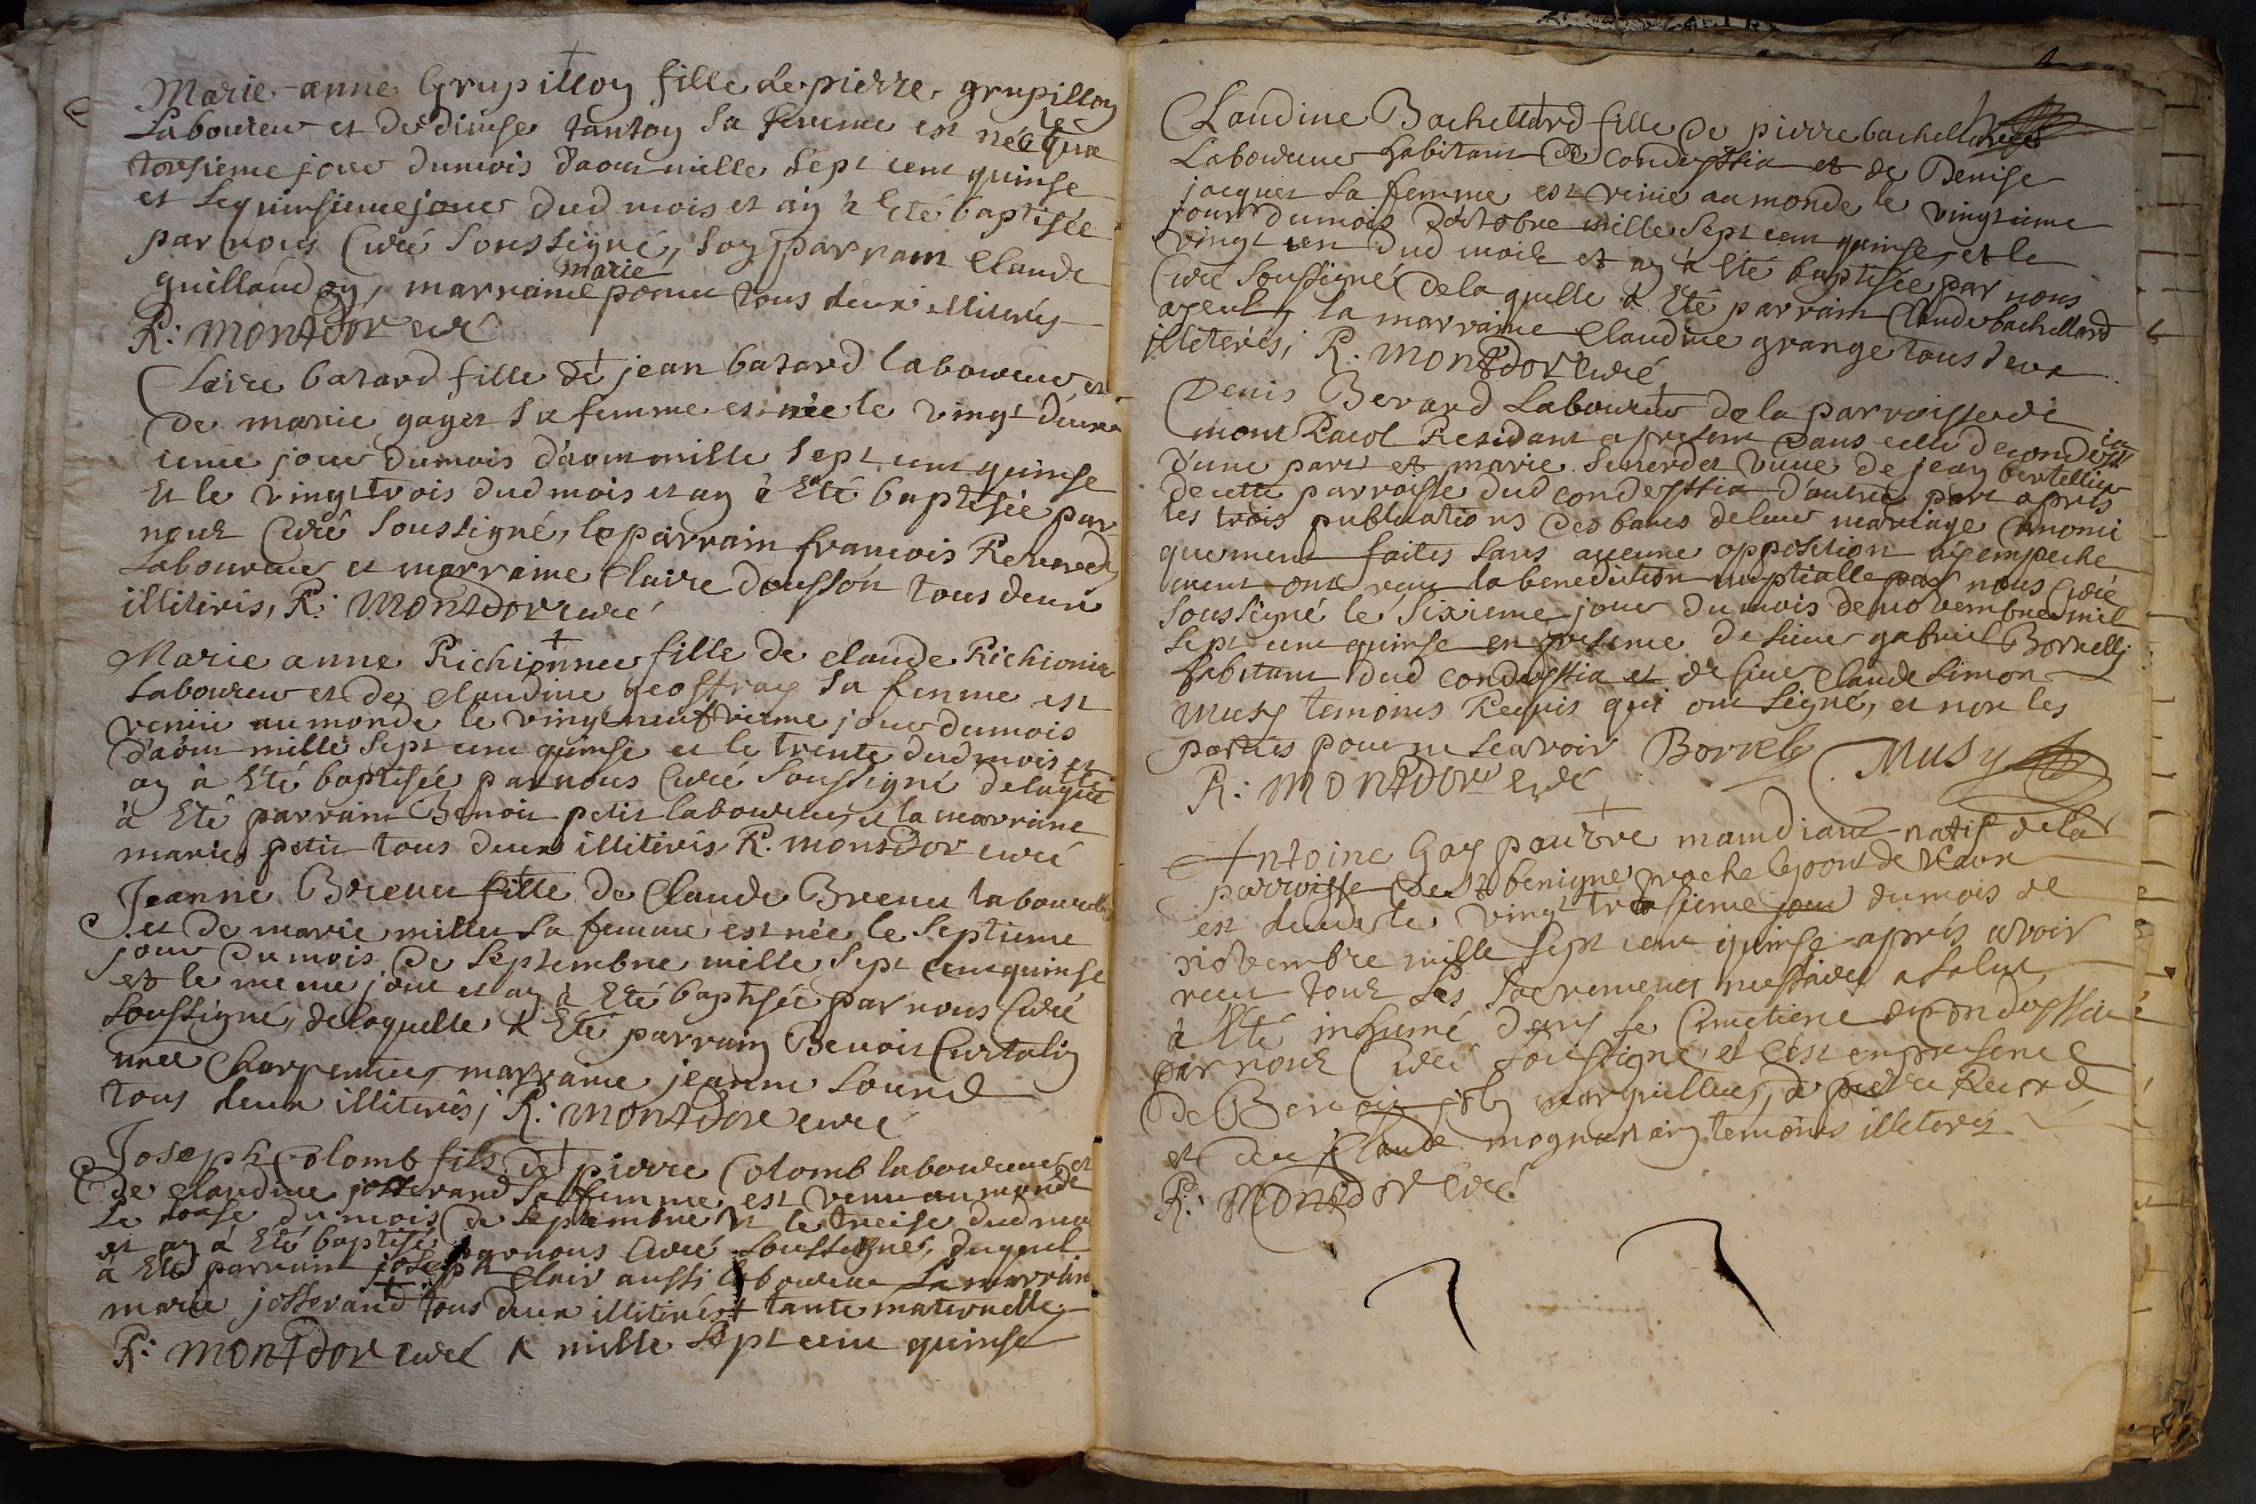 Marie-anne Grupilloy fille de pierre grupilloy
Laboureur et de denise tantoy sa femme est née le qua
torsieme jour du mois d'aout mille sept cent quinse
et le quinsieme jour dud mois et ay à Eté baptisée
par nous Curé soussigné, son parrain Claude
guillaudoy, marraine marie tous deux illiterés
R: Montdor curé
Claire batard fille de jean batard laboureur et
de marie gayet sa femme est née le vingt deux
ieme jour du mois d'aout mille sept cent quinse
et le vingt trois dud mois et ay à Eté baptisée par
nous Curé soussigné, le parrain francois Reverd
Laboureur et marraine Claire dousson tous deux
illitirés, R: Montdor curé
Marie anne Richionnier fille de claude Richionier
Laboureur et de claudine geoffray sa femme est
venue au monde le vingt neufvieme jour du mois
d'aout mille sept cent quinse et le trente dud mois et
ay à Eté baptisée par nous Curé soussigné de laquelle
à Eté parrain Benoit petit laboureur, et la marraine
marie petit tous deux illitirés R. montdor curé
Jeanne Brevet fille de Claude Brevet laboureur
et de marie millet sa femme est née le septieme
jour du mois de septembre mille sept cent quinse
et le meme jour et ay à Eté baptisée par nous Curé
soussigné, de laquelle à Eté parrain Benoit Curtaliy
Charpentier, marraine jeanne sourd
tous deux illiterés, R: Montdor curé
Joseph Colomb fils de pierre Colomb laboureur et
de claudine josserand sa femme est venu au monde
le douse du mois de septembre et le treise dud mois
et ay à Eté baptisé par nous Curé soussigné, duquel
à Eté parrain joseph Clair aussi laboureur la marraine
marie josserand tous deux illitirés + tante maternelle
R: Montdor curé + mille sept cent quinse
Claudine Bachellard fille de pierre bachellard
Laboureur habitant de condeyssia et de Denise
jacquet sa femme est venue au monde le vingtieme
jour du mois d'octobre mille sept cent quinse, et le
vingt un dud mois et ay à Eté baptisée par nous
Curé soussigné de laquelle à Eté parrain Claude bachellard
ayeul, la marraine Claudine grange tous deux
illiterés, R. Montdor Curé
Denis Berard Laboureur de la parroisse de
mont Racol Residant a present dans celle de condeyssia
d'une part et marie veuve de jean bertellier
de cette parroisse dud condeyssia d'autre part apres
les trois publications des bans de leur mariage Canoni
quement faites sans aucune opposition ny empeche
ment ont recu la benediction nuptialle par nous Curé
soussigné le sixieme jour du mois de novembre mil
sept cent quinse en presence de sieur gabriel Borrelly
habitant dud condeyssia et de sieur Claude simon
musy temoins Requis qui ont signé, et non les
parties pour ne scavoir Borrely Musy
R: Montdor curé
Antoine Gay pauvre mandiant natif de la
parroisse de St benigne proche le pont de Vaux
est decedé le vingt troisieme jour du mois de
novembre mille sept cent quinse apres avoir
recu tous les sacrements nessaires a salut
à Eté inhumé dans le Cimetiere de Condeyssia
par nous Curé soussigné, et c'est en presence
de Benoit marguillier, de pierre Reverd
et de Claude temoins illeterés
R: Montdor curé